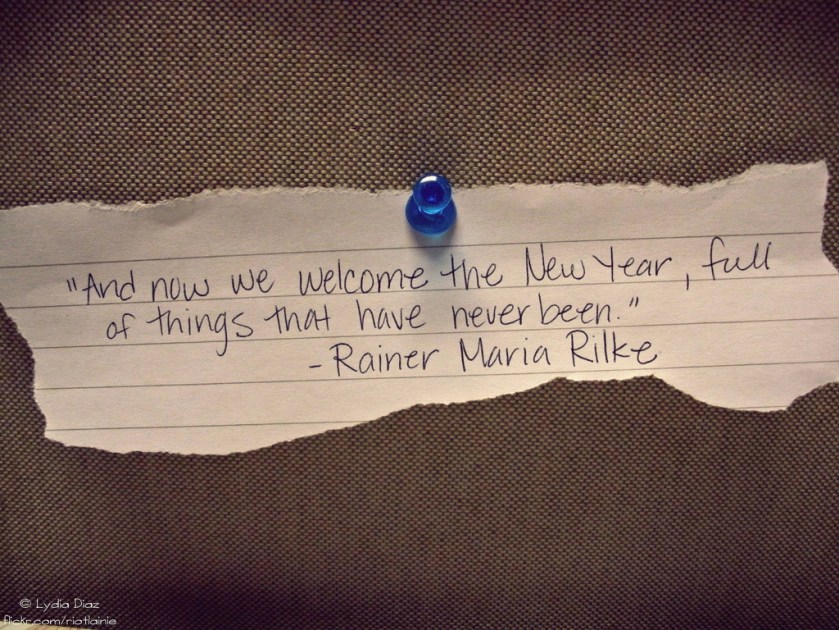 "And now we welcome the New Year, full
of things that have never been."
- Rainer Maria Rilke
© Lydia Diaz
flickr.com/riotlainie